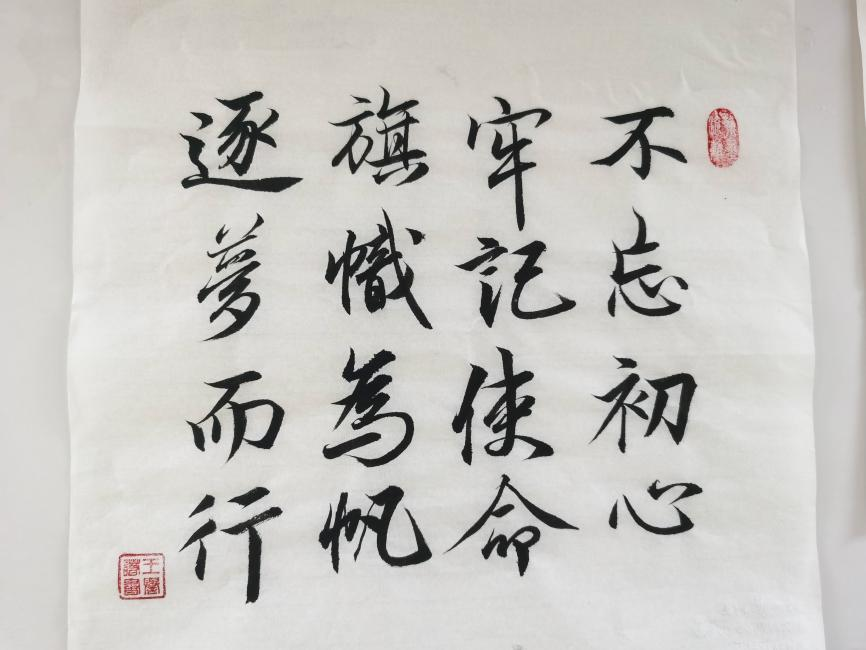 不忘初心
牢记使命
旗幟為帆
逐夢而行